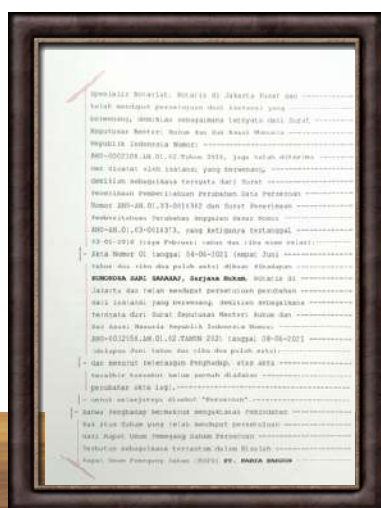 Spesialis Notariat, Notaris di Jakarta Pusat dan ------------
telah mendapat persetujuan dari instansi yang ---------------
berwenang, demikian sebagaimana ternyata dari Surat ---------
Keputusan Menteri Hukum dan Hak Asasi Manusia ---------------
Republik Indonesia Nomor: -----------------------------------
Tahun 2016, juga telah diterima ---
dan dicatat oleh instansi yang berwenang, -------------------
demikian sebagaimana ternyata dari Surat --------------------
Penerimaan Pemberitahuan Perubahan Data Perseroan -----------
Nomor dan Surat Penerimaan ------
Pemberitahuan Perubahan Anggaran Dasar Nomor ----------------
yang ketiganya tertanggal --------
03-02-2016 (tiga Februari tahun dua ribu enam belas);--------
- Akta Nomor 01 tanggal 04-06-2021 (empat Juni --------------
tahun dua ribu dua puluh satu) dibuat dihadapan -------------
SARI Sarjana Hukum, Notaris di -------
Jakarta dan telah mendapat persetujuan perubahan ------------
dari instansi yang berwenang, demikian sebagaimana ----------
ternyata dari Surat Keputusan Menteri Hukum dan -------------
Hak Asasi Manusia Republik Indonesia Nomor: -----------------
TAHUN 2021 tanggal 08-06-2021 ------
(delapan Juni tahun dua ribu dua puluh satu); ---------------
- dan menurut keterangan Penghadap, atas akta ---------------
terakhir tersebut belum pernah diadakan ---------------------
perubahan akta lagi.-----------------------------------------
- untuk selanjutnya disebut "Perseroan". --------------------
- Bahwa Penghadap bermaksud
Hak atas Saham yang telah mendapat persetujuan --------------
dari Rapat Umum Pemegang Saham Perseroan --------------------
Terbatas sebagaimana tercantum dalam Risalah ----------------
Rapat Umum Pemegang Saham (RUPS) PT.